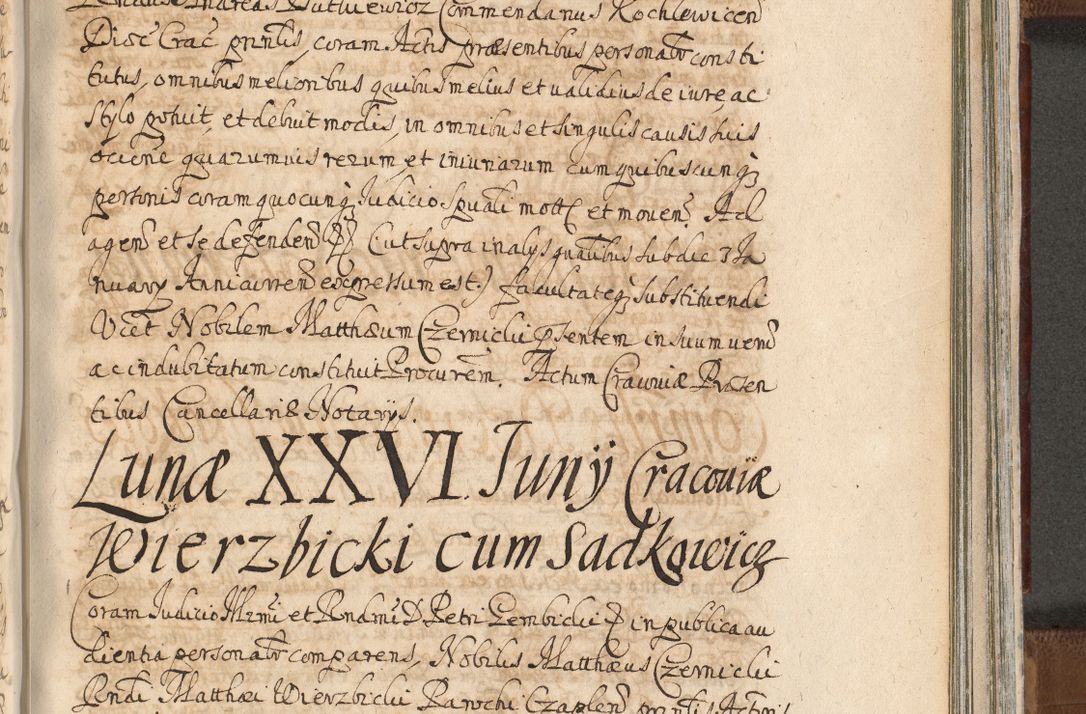 Andreas Dutkiewicz Commendarius Kochlewicen
Dioec Crac prntis, coram Actis præsentibus personalr consti
tutus, omnibus melioribus quibus melius et validius de iure, ac
stylo potuit, et debuit modis, in omnibus et singulis causis suis
ocione quarumuis rerum, et iniuriarum cum quibuscunq
personis coram quocunq Iudicio Spuali mott et mouen Ad
agen et se defenden P (ut supra in alys qualibus sub die 3 Ia
nuary Anni curren expressum est) facultateq substituendi
Vicet Nobilem Matthæum Czernicki Psentem in suum verũ
ac indubitatum constituit Procurem. Actum Cracouiæ Præsen
tibus Cancellariæ Notarijs.
Lunæ XXVI. Junÿ Cracouiæ
Wierzbicki cum Sadkowicz
Coram Iudicio Illrmi et Rndmi D Petri Gembicki P in publica au
dientia personalr comparens, Nobilis Matthæus Czernicki
Rndi Matthæi Wierzbicki Parochi Czaplen prntis Actoris